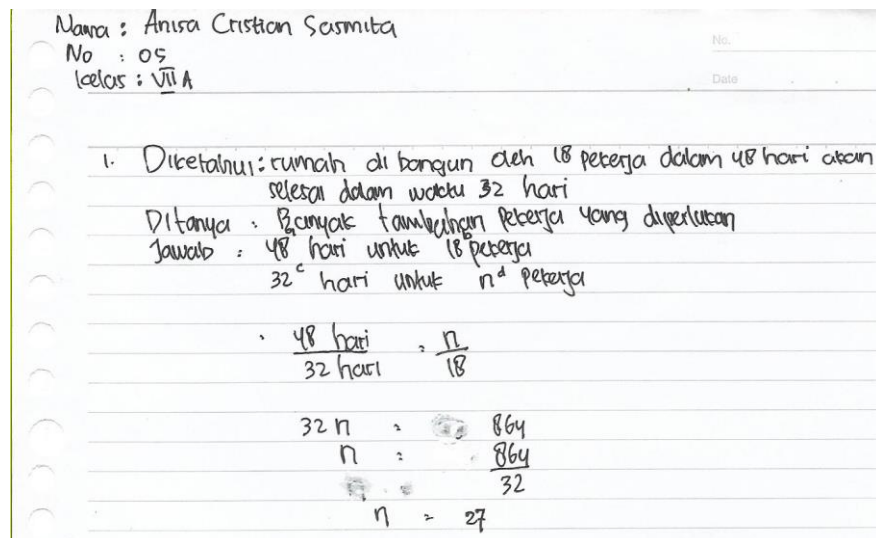 Nama : Anisa Cristian Sasmita
No : 05
kelas : VII A
No.
Date
1. Diketahui : rumah di bangun oleh 18 pekerja dalam 48 hari akan
selesai dalam waktu 32 hari
Ditanya : Banyak tambahan pekerja yang diperlukan
Jawab : 48ᵃ hari untuk 18ᵇ pekerja
32ᶜ hari untuk nᵈ pekerja
48 hari = n
32 hari 18
32 n = 864
n = 864
32
n = 27